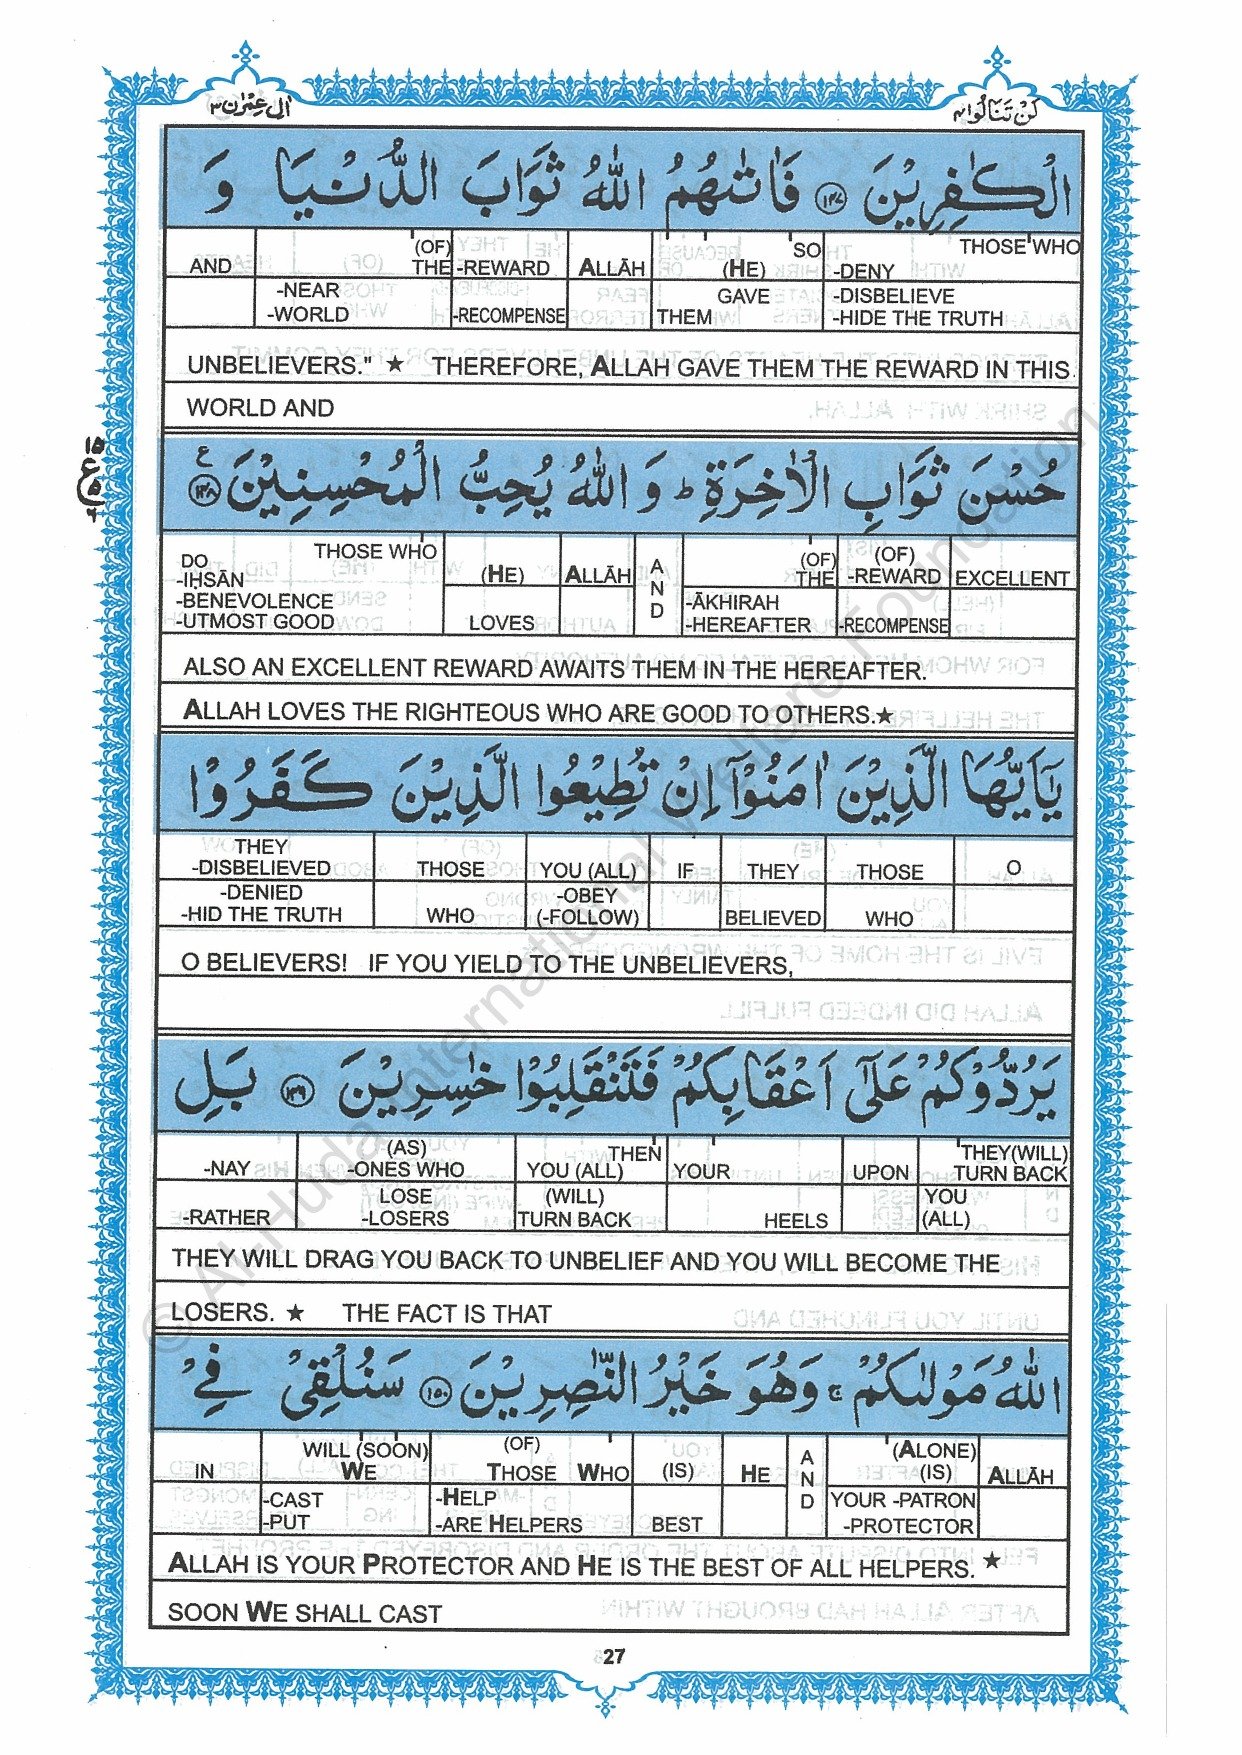 اٰلِ عِمْرٰن ٣
لَنْ تَنَالُوا ٤
الْكٰفِرِيْنَ ﴿١٤٧﴾ فَاٰتٰىهُمُ اللّٰهُ ثَوَابَ الدُّنْيَا وَ
AND (OF) THE -NEAR -WORLD -REWARD -RECOMPENSE ALLĀH (HE) SO GAVE THEM THOSE WHO -DENY -DISBELIEVE -HIDE THE TRUTH
UNBELIEVERS." ★ THEREFORE, ALLAH GAVE THEM THE REWARD IN THIS
WORLD AND
١٥
ع
٥
٦
حُسْنَ ثَوَابِ الْاٰخِرَةِ ؕ وَ اللّٰهُ يُحِبُّ الْمُحْسِنِيْنَ ﴿١٤٨﴾ ع
THOSE WHO DO -IHSĀN -BENEVOLENCE -UTMOST GOOD (HE) LOVES ALLĀH AND (OF) THE -ĀKHIRAH -HEREAFTER (OF) -REWARD -RECOMPENSE EXCELLENT
ALSO AN EXCELLENT REWARD AWAITS THEM IN THE HEREAFTER.
ALLAH LOVES THE RIGHTEOUS WHO ARE GOOD TO OTHERS.★
يٰۤاَيُّهَا الَّذِيْنَ اٰمَنُوْۤا اِنْ تُطِيْعُوا الَّذِيْنَ كَفَرُوْا
THEY -DISBELIEVED -DENIED -HID THE TRUTH THOSE WHO YOU (ALL) -OBEY (-FOLLOW) IF THEY BELIEVED THOSE WHO O
O BELIEVERS! IF YOU YIELD TO THE UNBELIEVERS,
يَرُدُّوْكُمْ عَلٰۤى اَعْقَابِكُمْ فَتَنْقَلِبُوْا خٰسِرِيْنَ ﴿١٤٩﴾ بَلِ
-NAY -RATHER (AS) -ONES WHO LOSE -LOSERS THEN YOU (ALL) (WILL) TURN BACK YOUR HEELS UPON THEY(WILL) TURN BACK YOU (ALL)
THEY WILL DRAG YOU BACK TO UNBELIEF AND YOU WILL BECOME THE
LOSERS. ★ THE FACT IS THAT
اللّٰهُ مَوْلٰىكُمْ ۚ وَهُوَ خَيْرُ النّٰصِرِيْنَ ﴿١٥٠﴾ سَنُلْقِىْ فِىْ
IN WILL (SOON) WE -CAST -PUT (OF) THOSE WHO -HELP -ARE HELPERS (IS) BEST HE AND (ALONE) (IS) YOUR -PATRON -PROTECTOR ALLĀH
ALLAH IS YOUR PROTECTOR AND HE IS THE BEST OF ALL HELPERS. ★
SOON WE SHALL CAST
27
© Al-Huda International Welfare Foundation